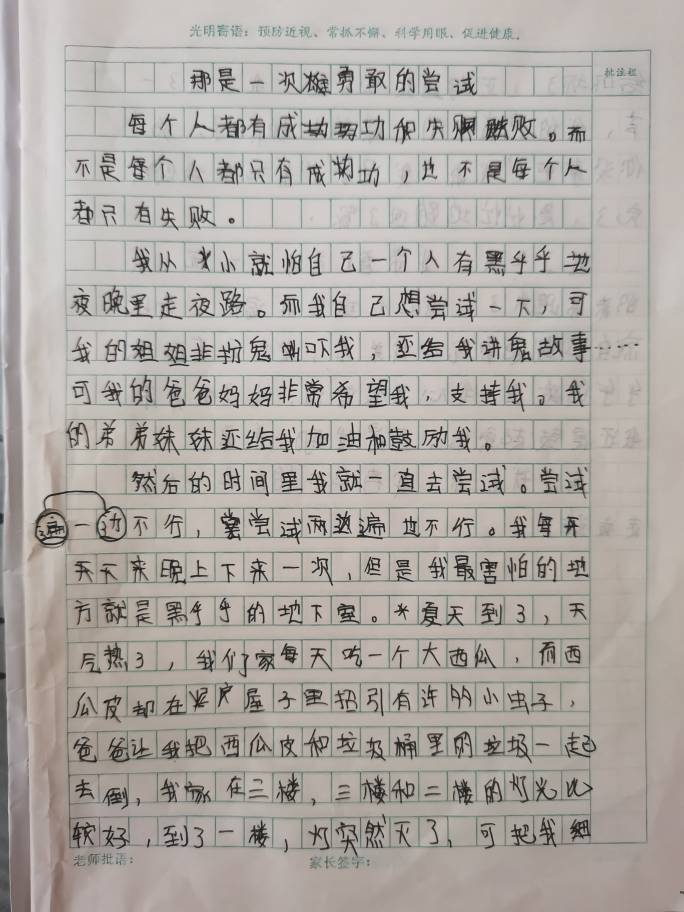 光明寄语：预防近视、常抓不懈、科学用眼、促进健康.
批注栏
那是一次雄勇敢的尝试
每个人都有成功和失败。而
不是每个人都只有成功，也不是每个人
都只有失败。
我从小就怕自己一个人有黑乎乎地
夜晚里走夜路。而我自己想尝试一下，可
我的姐姐非扮鬼吓我，还给我讲鬼故事……
可我的爸爸妈妈非常希望我，支持我。我
的弟弟妹妹还给我加油和鼓励我。
然后的时间里我就一直去尝试。尝试
遍一边不行，尝试两遍也不行。我每天
天天来晚上下来一次，但是我最害怕的地
方就是黑乎乎的地下室。夏天到了，天
气热了，我们家每天吃一个大西瓜，而西
瓜皮却在屋子里招引有许多小虫子，
爸爸让我把西瓜皮和垃圾桶里的垃圾一起
去倒，我家在三楼，三楼和二楼的灯光比
较好，到了一楼，灯突然灭了，可把我
老师批语：
家长签字：